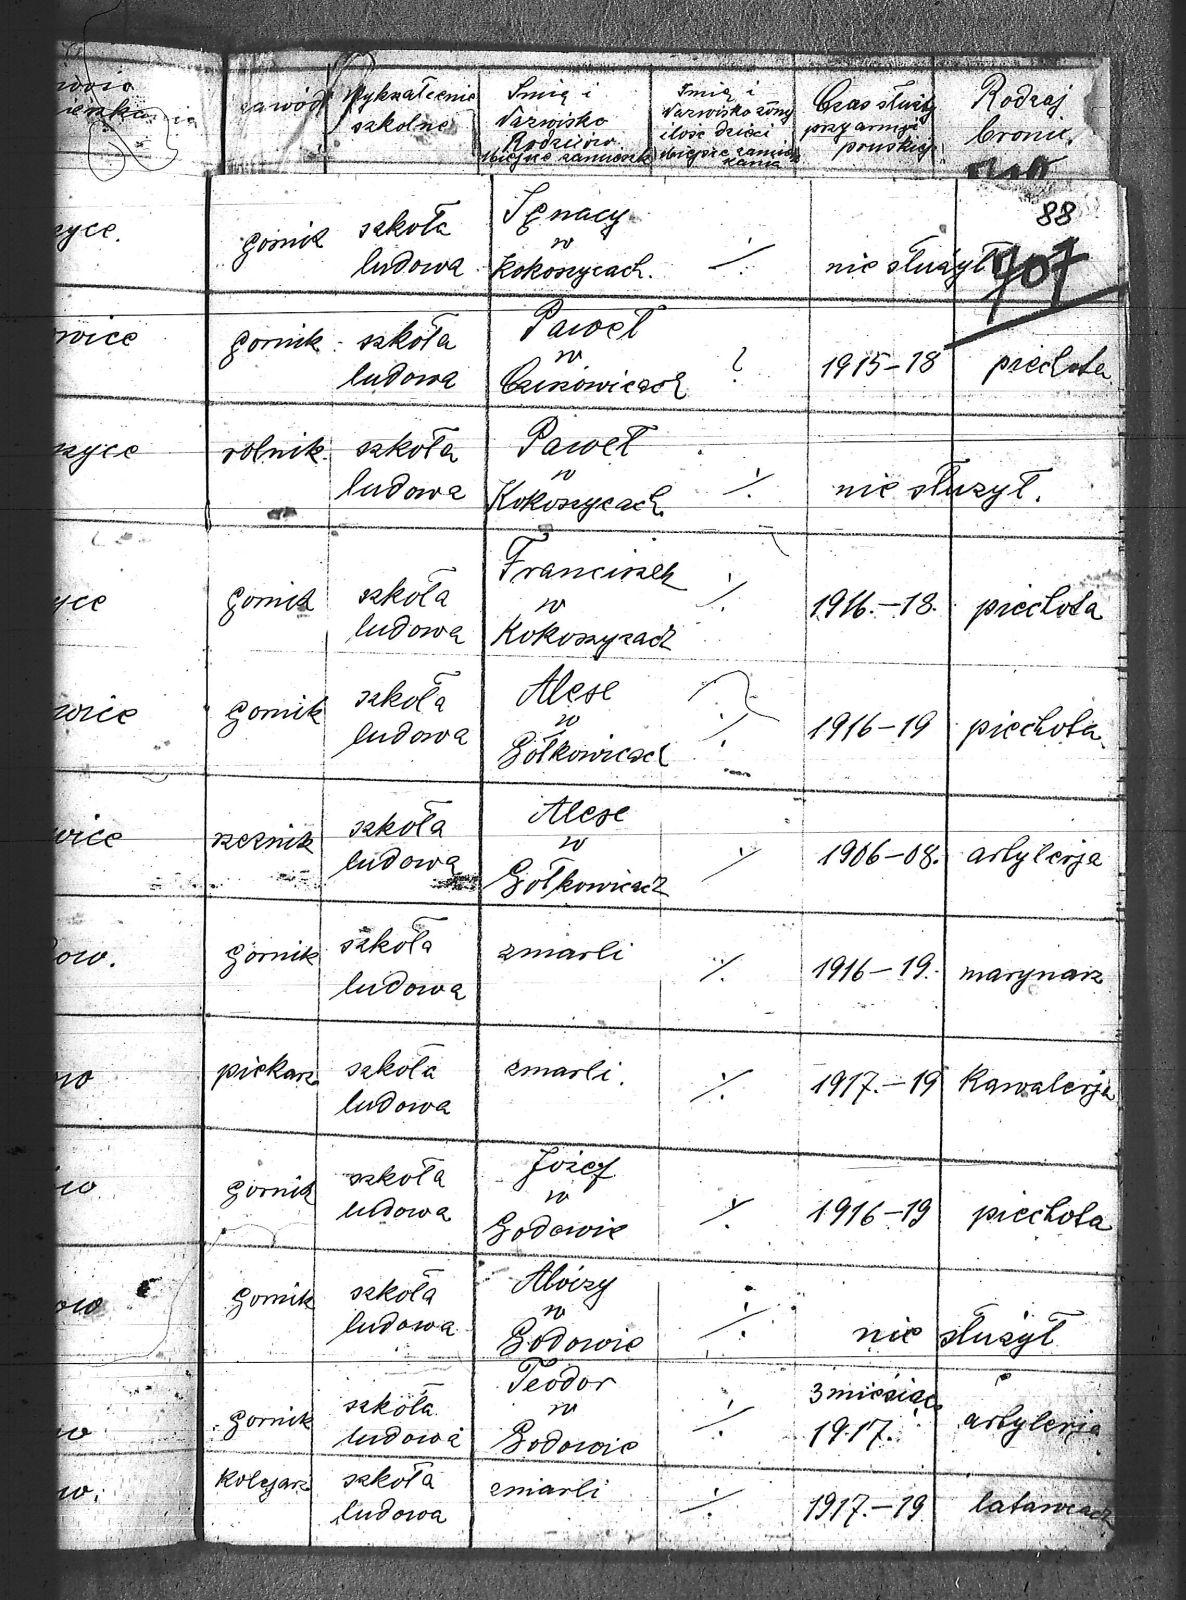 zawód
Wykształcenie
szkolne
Imię i
Nazwisko
Rodziców
Miejsce zamieszk
Imię i
Nazwisko żony
ilość dzieci
Miejsce zamiesz
kania
Czas służby
przy armji
pruskiej
Rodzaj
broni.
88
707
zyce.
gornik
szkoła
ludowa
Ignacy
w
Kokoszycach.
/.
nie służył
owice
gornik
szkoła
ludowa
Paweł
w
?
1915-18
piechota
szyce
rolnik
szkoła
ludowa
Paweł
w
Kokoszycach
/.
nie służył.
yce
gornik
szkoła
ludowa
Franciszek
w
Kokoszycach
/.
1916.-18.
piechota
owice
gornik
szkoła
ludowa
w
Gołkowicach
/.
1916-19
piechota
wice
rzeznik
szkoła
ludowa
w
Gołkowicach
/.
1906-08.
artylerja
ow.
gornik
szkoła
ludowa
zmarli
/.
1916-19.
marynarz
ow
piekarz
szkoła
ludowa
zmarli.
/.
1917.-19
Kawalerja
ow
gornik
szkoła
ludowa
Józef
w
Godowie
/.
1916-19
piechota
ow
gornik
szkoła
ludowa
Aloizy
w
Godowie
/.
nie służył
ow
gornik
szkoła
ludowa
Teodor
w
Godowie
/.
3 miesiące
1917.
artylerja
w.
Kolejarz
szkoła
ludowa
zmarli
/.
1917.-19